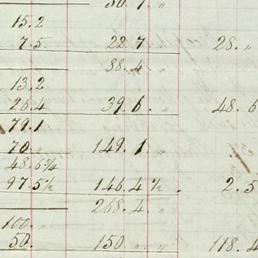 15.2
7.5 22.7 " 28. "
88.4
13.2
26.4 39.6 . 48.6
79.1
70. " 149.1
48.6¾
97.5½ 146.4½ . 2.5
268.4 "
100. "
50. 150. " 118.4